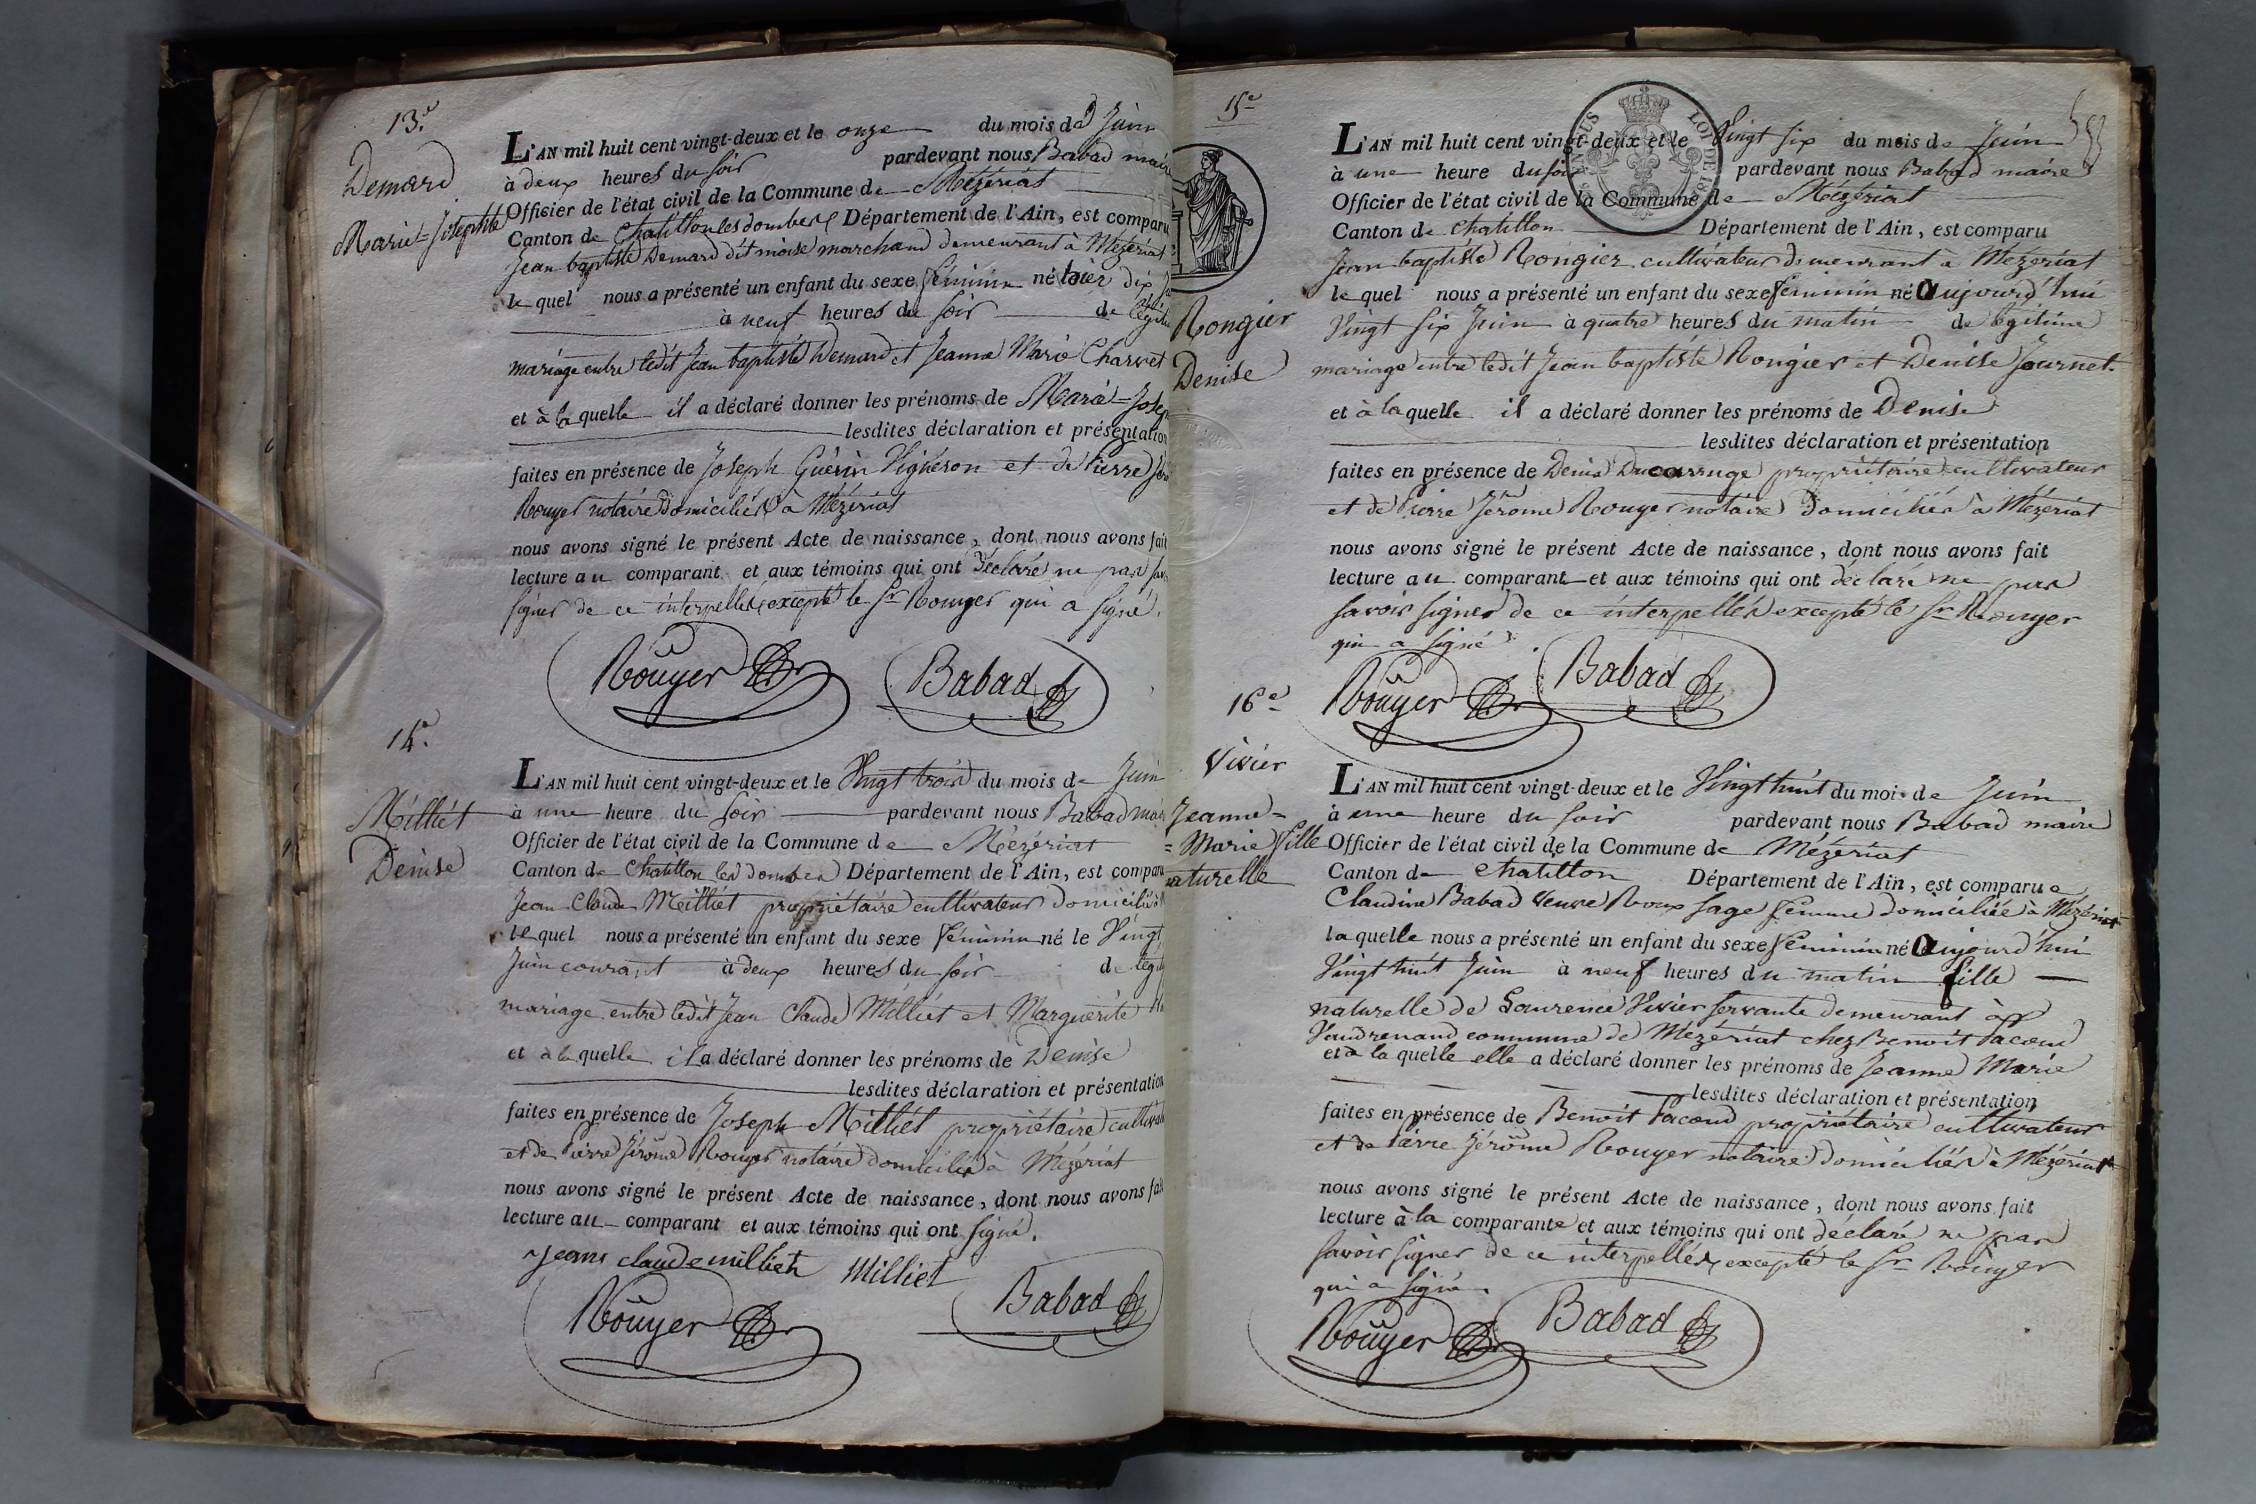 13.e
Demard
Marie-Josephte
L'AN mil huit cent vingt-deux et le onze du mois de Juin
à deux heures du soir pardevant nous Babad maire
Officier de l'état civil de la Commune de Mézériat
Canton de Chatillon les dombes Département de l'Ain, est comparu
Jean baptiste Demard dit moise marchand demeurant à Mézériat
le quel nous a présenté un enfant du sexe féminin né hier dix
à neuf heures du soir de
mariage entre ledit Jean baptiste Demard et Jeanne Marie Charvet
et à la quelle il a déclaré donner les prénoms de Marie-Josep
lesdites déclaration et présentation
faites en présence de Joseph Guérin Vigneron et de Pierre
Rouyer notaire domiciliés à Mézériat
nous avons signé le présent Acte de naissance, dont nous avons fait
lecture au comparant et aux témoins qui ont déclaré ne pas
signer de ce interpellés excepté le Sr Rouyer qui a signé.
Rouyer Babad
14.e
Milliet
Denise
L'AN mil huit cent vingt-deux et le Vingt trois du mois de Juin
à une heure du soir pardevant nous Babad
Officier de l'état civil de la Commune de Mézériat
Canton de Chatillon les dombes Département de l'Ain, est comparu
Jean Claude Milliet propriétaire cultivateur domicilié
le quel nous a présenté un enfant du sexe féminin né le Vingt
Juin courant à deux heures du soir de
mariage entre ledit Jean Claude Milliet et Marguerite
et à la quelle il a déclaré donner les prénoms de Denise
lesdites déclaration et présentation
faites en présence de Joseph Milliet propriétaire
et de Pierre Jérôme Rouyer notaire domiciliés à Mézériat
nous avons signé le présent Acte de naissance, dont nous avons fait
lecture au comparant et aux témoins qui ont signé.
Jean claude milliet Milliet
Rouyer Babad
15e
Rongier
Denise
L'AN mil huit cent vingt-deux et le Vingt six du mois de Juin
à une heure du soir pardevant nous Babad maire
Officier de l'état civil de la Commune de Mézériat
Canton de Chatillon Département de l'Ain, est comparu
Jean baptiste Rongier cultivateur demeurant à Mézériat
le quel nous a présenté un enfant du sexe féminin né aujourd'hui
Vingt six Juin à quatre heures du matin de légitime
mariage entre ledit Jean baptiste Rongier et Denise Journet.
et à la quelle il a déclaré donner les prénoms de Denise
lesdites déclaration et présentation
faites en présence de Denis Ducarruge propriétaire cultivateur
et de Pierre Jérôme Rouyer notaire domiciliés à Mézériat
nous avons signé le présent Acte de naissance, dont nous avons fait
lecture au comparant et aux témoins qui ont déclaré ne pas
savoir signer de ce interpellés excepté le Sr Rouyer
qui a signé.
Rouyer Babad
16e
Vivier
Jeanne-
=Marie fille
naturelle
L'AN mil huit cent vingt-deux et le Vingt huit du mois de Juin
à une heure du soir pardevant nous Babad maire
Officier de l'état civil de la Commune de Mézériat
Canton de Chatillon Département de l'Ain, est comparue
Claudine Babad veuve Roux sage femme domiciliée à Mézériat
la quelle nous a présenté un enfant du sexe féminin né aujourd'hui
Vingt huit Juin à neuf heures du matin fille
naturelle de Laurence Vivier servante demeurant à
Vaudrenand commune de Mézériat chez Benoit Pacoud
et à la quelle elle a déclaré donner les prénoms de Jeanne Marie
lesdites déclaration et présentation
faites en présence de Benoit Pacoud propriétaire cultivateur
et de Pierre Jérôme Rouyer notaire domiciliés à Mézériat
nous avons signé le présent Acte de naissance, dont nous avons fait
lecture à la comparante et aux témoins qui ont déclaré ne pas
savoir signer de ce interpellés, excepté le Sr Rouyer
qui a signé.
Rouyer Babad